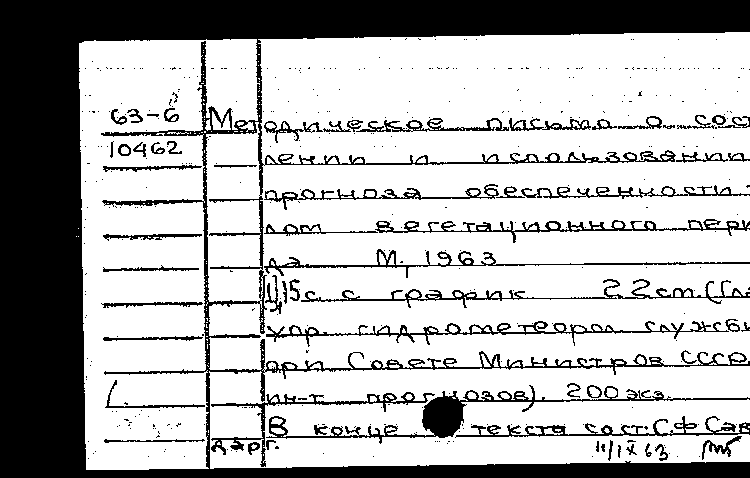 63-6 Методическое письмо о сост
10462 лении и использовании
прогноза обеспеченности т
лом вегетационного пери
да. М., 1963
15 с. с график. 22 см. (Гла
упр. гидрометеорол службы
при Совете Министров СССР
ин-т прогнозов). 200 экз.
В конце текста сост: С.Ф Сав
11/IX 63